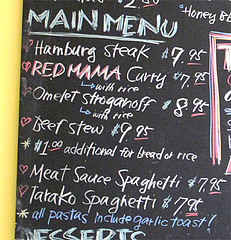 Honey
MAIN MENU
Hamburg steak $7.95
RED MAMA Curry $7.95
with rice
Omelet stroganoff $8.95
with rice
Beef stew $9.95
* $1.00 additional for bread or rice
Meat Sauce Spaghetti $7.95
Tarako Spaghetti $7.95
* all pastas include garlic toast!
DESSERTS